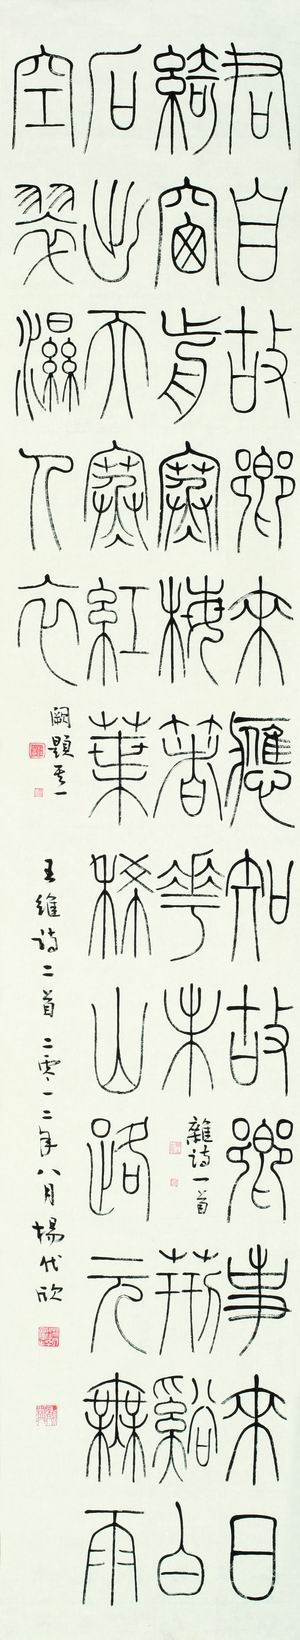 君自故鄉來應知故鄉事來日
綺窗前寒梅著花未
雜詩一首
荊谿白
石出天寒紅葉稀山路元無雨
空翠濕人衣
闕題其一
王維詩二首 二零一二年八月 楊代欣